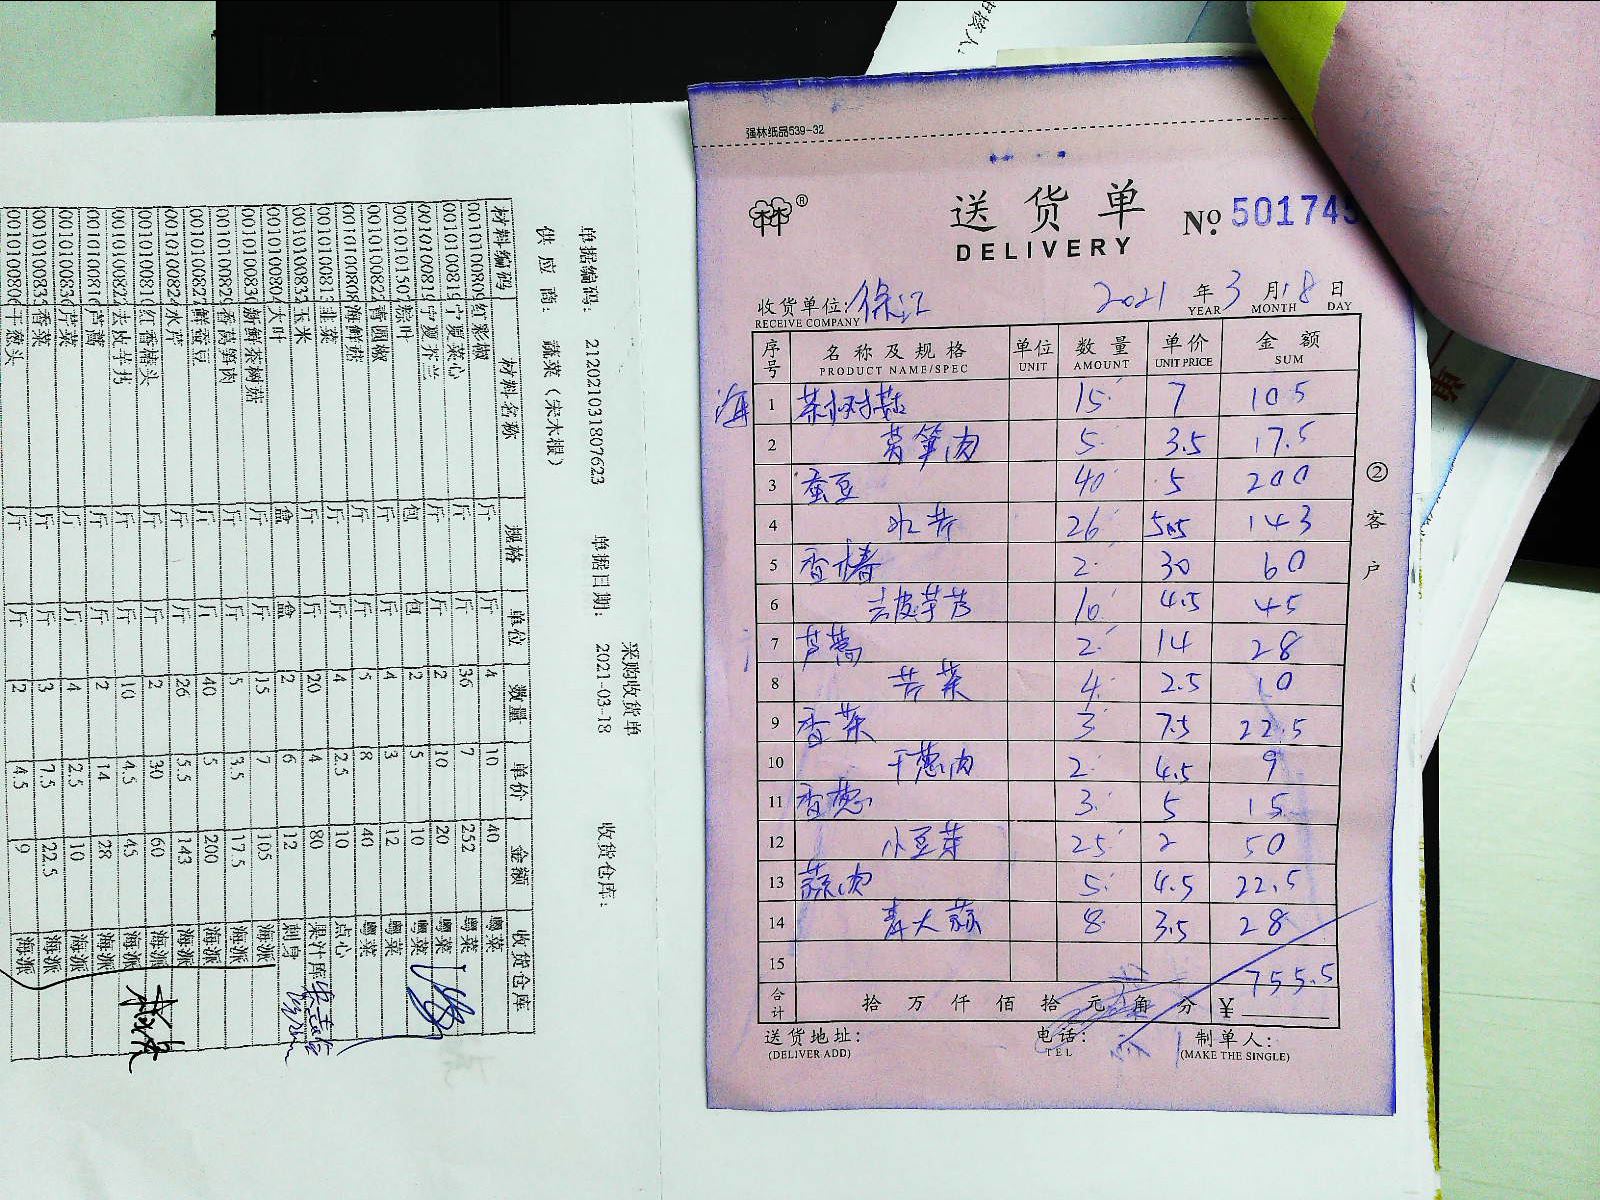 强林纸品539-32
送货单
DELIVERY
№ 501745
收货单位: 徐汇 2021年3月18日
RECEIVE COMPANY YEAR MONTH DAY
序号 名称及规格 单位 数量 单价 金额
PRODUCT NAME/SPEC UNIT AMOUNT UNIT PRICE SUM
海 1 茶树菇 15 7 105
2 莴笋肉 5 3.5 17.5
3 蚕豆 40 5 200
4 水芹 26 5.5 143
5 香椿 2 30 60
6 去皮芋艿 10 4.5 45
7 芦蒿 2 14 28
8 芹菜 4 2.5 10
9 香菜 3 7.5 22.5
10 干葱肉 2 4.5 9
11 香葱 3 5 15
12 小豆芽 25 2 50
13 蒜肉 5 4.5 22.5
14 青大蒜 8 3.5 28
15 755.5
合计 拾万仟佰拾元角分 ¥
送货地址: 电话: 制单人:
(DELIVER ADD) TEL (MAKE THE SINGLE)
②客户
采购收货单
单据编码: 212021031807623 单据日期: 2021-03-18 收货仓库:
供应商: 蔬菜(宋木根)
材料编码 材料名称 规格 单位 数量 单价 金额 收货仓库
0010100809 红彩椒 斤 斤 4 10 40 粤菜
001010081 宁夏菜心 斤 斤 36 7 252 粤菜
001010081 宁夏芥兰 斤 斤 2 10 20 粤菜
001010150 粽叶 包 包 2 5 10 粤菜
001010082 青圆椒 斤 斤 4 3 12 粤菜
0010100808 海鲜菇 斤 斤 5 8 40 粤菜
001010081 韭菜 斤 斤 4 2.5 10 点心
001010083 玉米 斤 斤 20 4 80 果汁库
001010080 大叶 盒 盒 2 6 12 刺身
001010083 新鲜茶树菇 斤 斤 15 7 105 海派
001010082 香莴笋肉 斤 斤 5 3.5 17.5 海派
001010082 鲜蚕豆 斤 斤 40 5 200 海派
001010082 水芹 斤 斤 26 5.5 143 海派
001010081 红香椿头 斤 斤 2 30 60 海派
001010082 去皮芋艿 斤 斤 10 4.5 45 海派
001010081 芦蒿 斤 斤 2 14 28 海派
001010083 芹菜 斤 斤 4 2.5 10 海派
001010083 香菜 斤 斤 3 7.5 22.5 海派
001010080 干葱头 斤 斤 2 4.5 9 海派